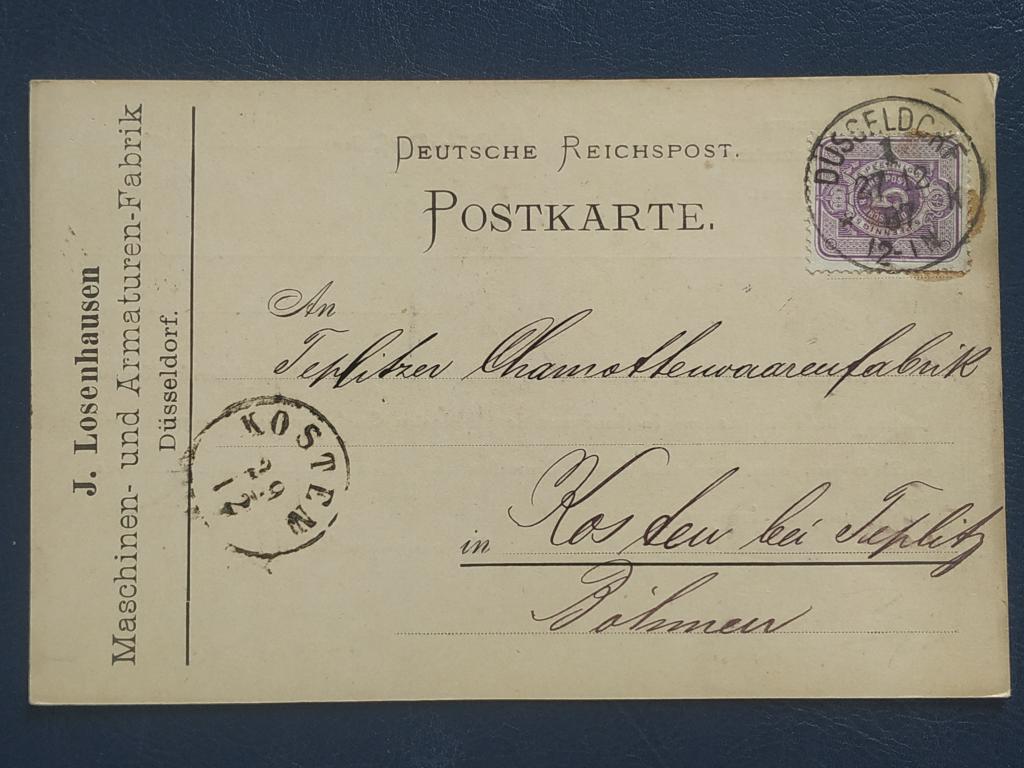 J. Losenhausen
Maschinen- und Armaturen-Fabrik
Düsseldorf.
DEUTSCHE REICHSPOST.
POSTKARTE.
DÜSSELDORF
1
27 12
12-1N
An
Teplitzer Chamottewaarenfabrik
KOSTEN
29
12
in Kosten bei Teplitz
Böhmen